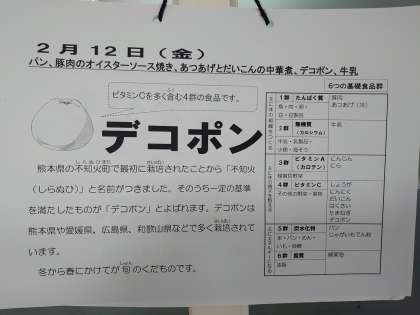 2月12日(金)
パン、豚肉のオイスターソース焼き、あつあげとだいこんの中華煮、デコポン、牛乳
ビタミンCを多く含む4群の食品です。
デコポン
熊本県の不知火町で最初に栽培されたことから「不知火
(しらぬひ)」と名前がつきました。そのうち一定の基準
を満たしたものが「デコポン」とよばれます。デコポンは
熊本県や愛媛県、広島県、和歌山県などで多く栽培されて
います。
冬から春にかけてが旬のくだものです。
6つの基礎食品群
1群 たんぱく質
豚肉
あつあげ
2群 無機質
(カルシウム)
牛乳
3群 ビタミンA
(カロテン)
にんじん
にら
緑黄色野菜
4群 ビタミンC
その他の野菜・果物
しょうが
にんにく
だいこん
はくさい
たまねぎ
デコポン
5群 炭水化物
米・パン・めん・
いも・砂糖
パン
6群 脂質
油脂